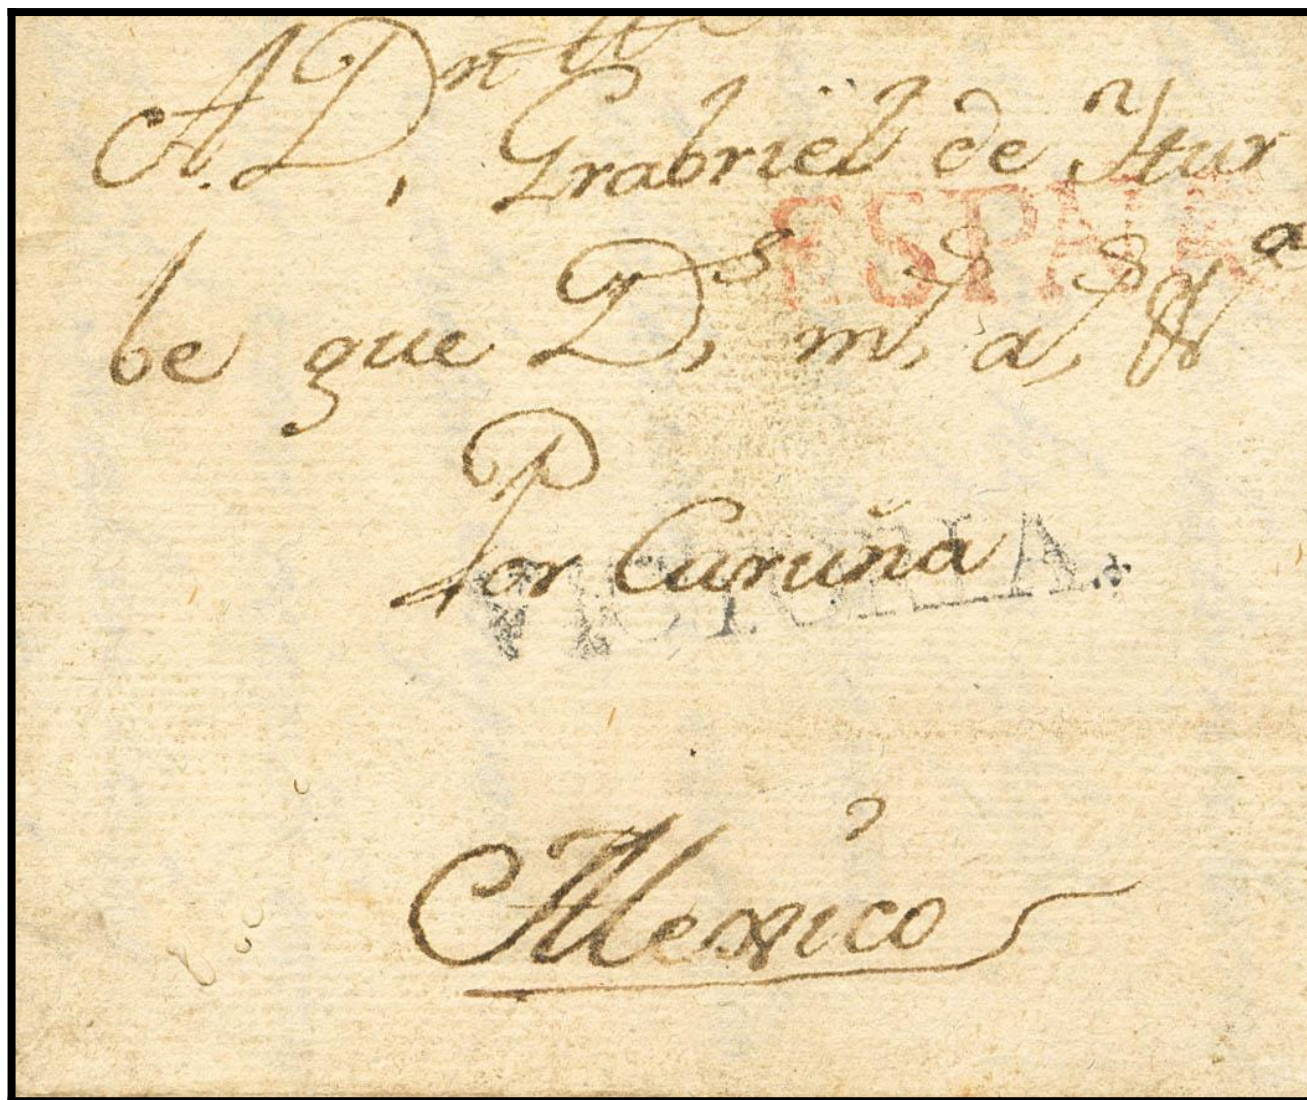 A D,ⁿ Gabriel de Ytur
ESPAÑA
be que D,ˢ m, a, ª
Por Curuña
VICTORIA.
Mexico